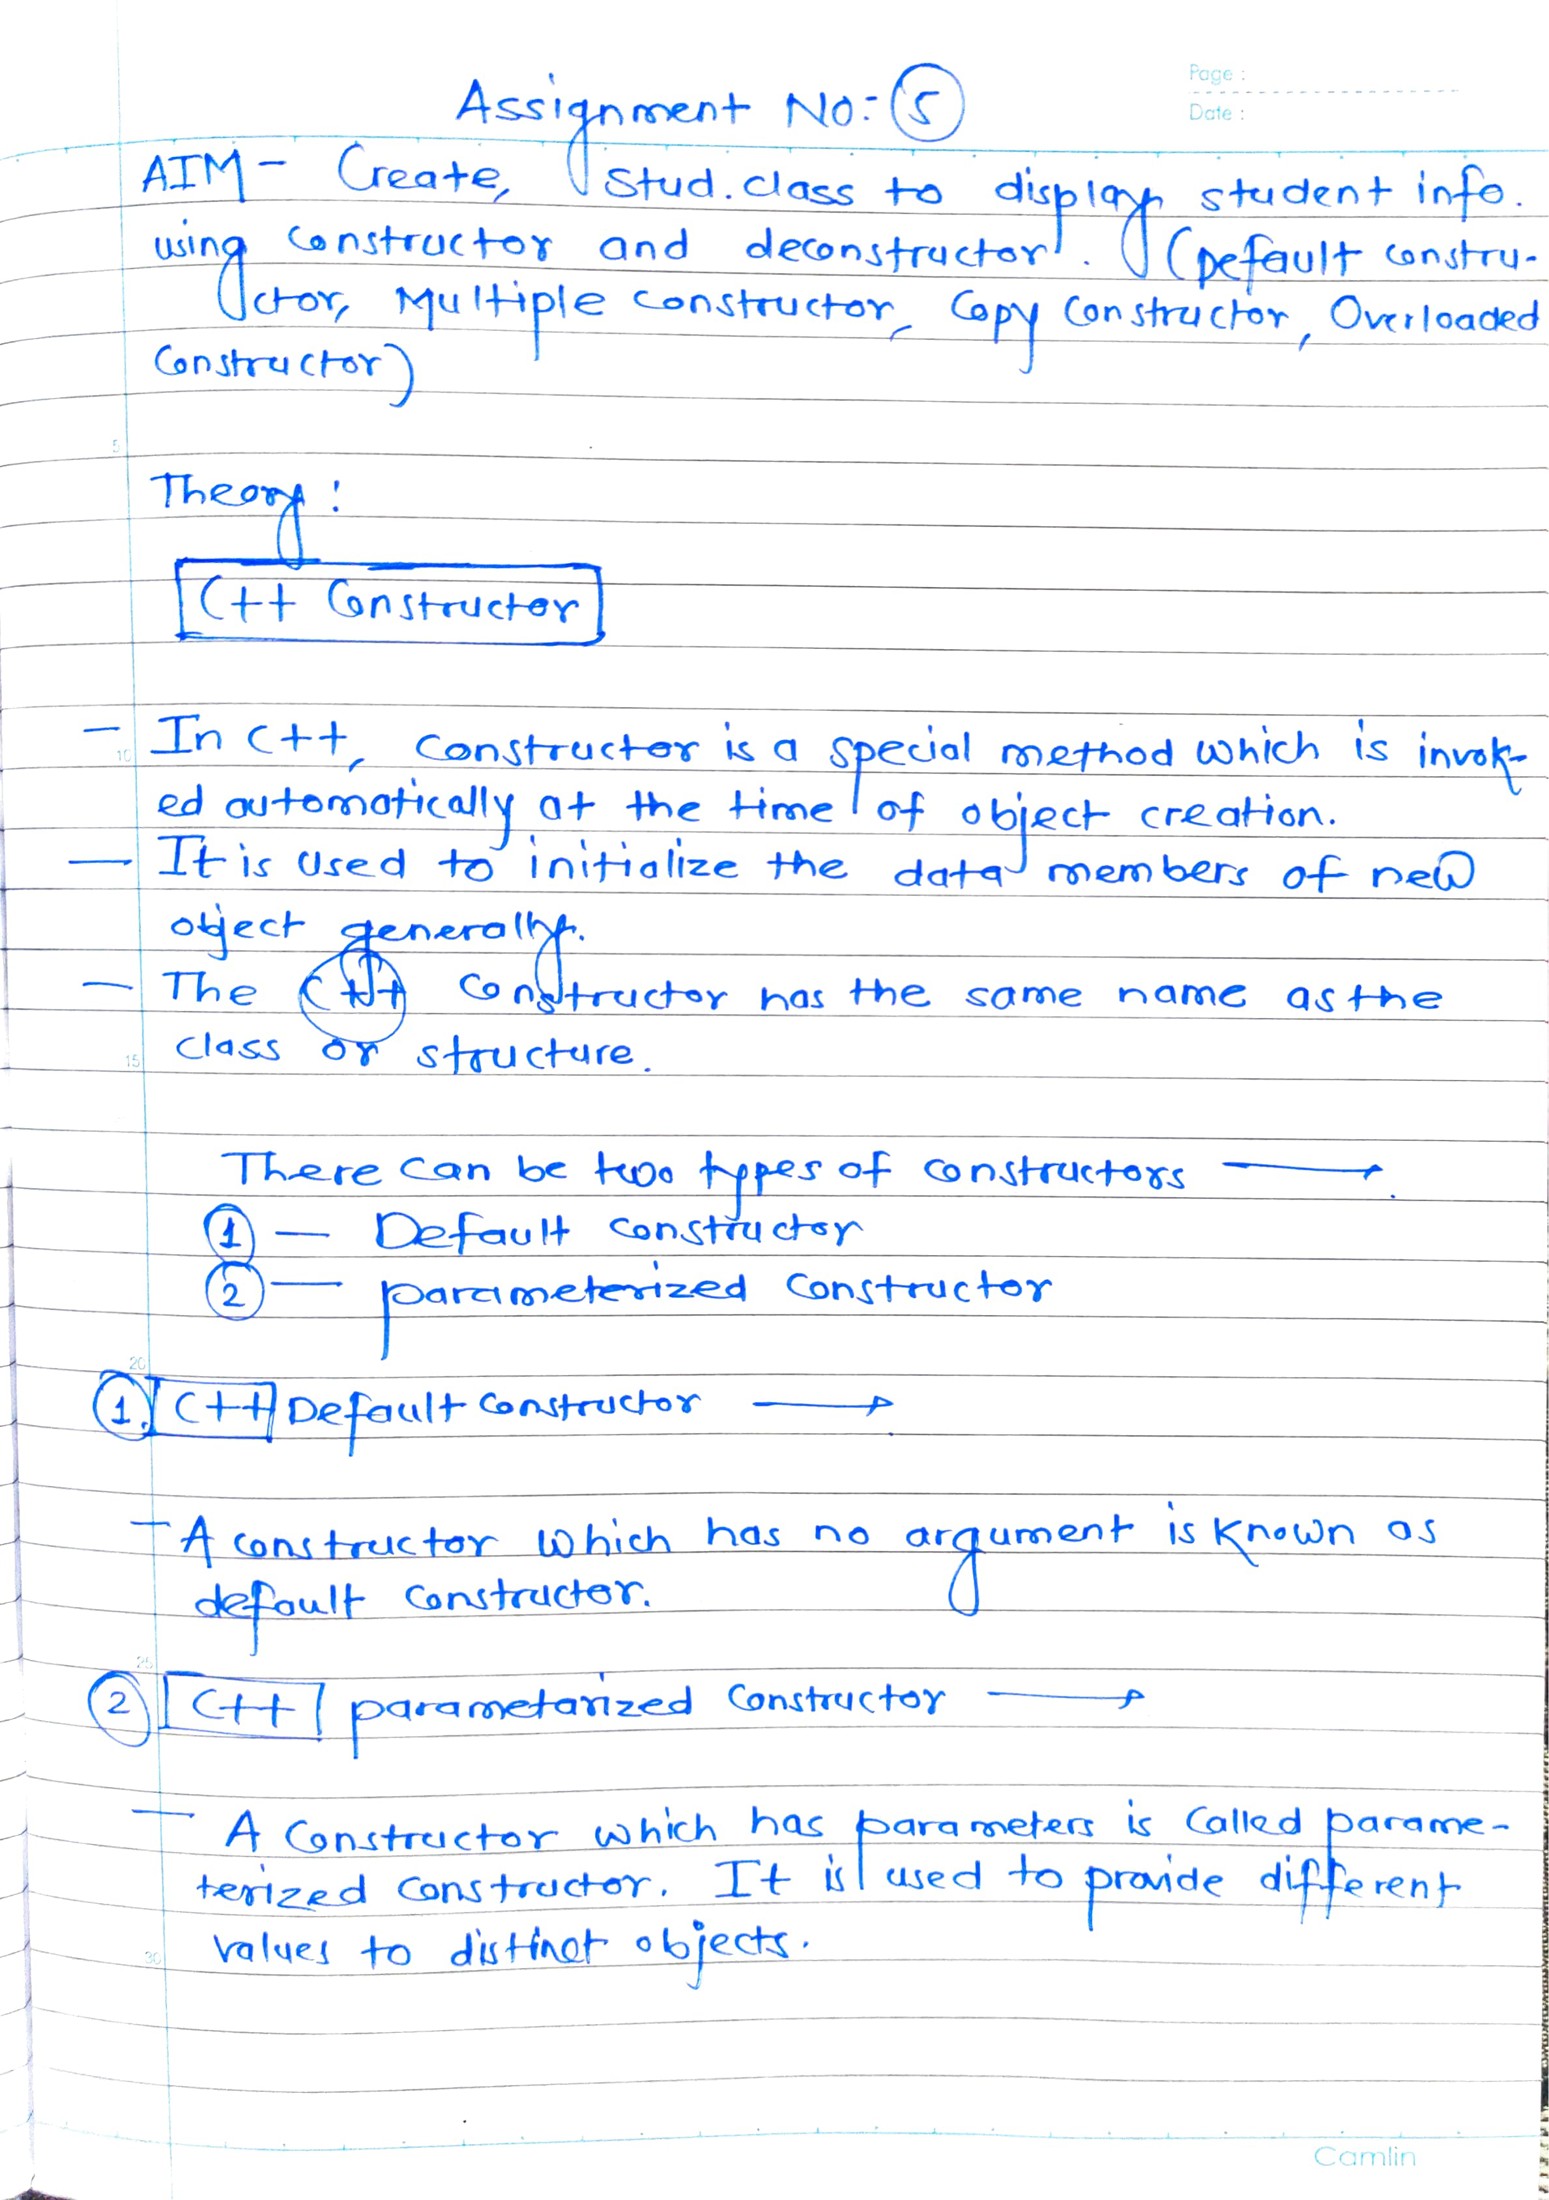 Page :
Date :
Assignment No:- 5
AIM - Create, Stud. class to display student info.
using constructor and deconstructor. (Default constru-
ctor, Multiple constructor, Copy constructor, Overloaded
Constructor)
5
Theory :
C++ Constructor
- In C++, constructor is a special method which is invok-
10
ed automatically at the time of object creation.
- It is used to initialize the data members of new
object generally.
- The C++ constructor has the same name as the
class or structure.
15
There can be two types of constructors →
1 - Default constructor
2 - parameterized constructor
20
1. C++ Default constructor →
- A constructor which has no argument is known as
default constructor.
25
2 C++ parametarized constructor →
- A Constructor which has parameters is called parame-
terized constructor. It is used to provide different
values to distinct objects.
30
Camlin